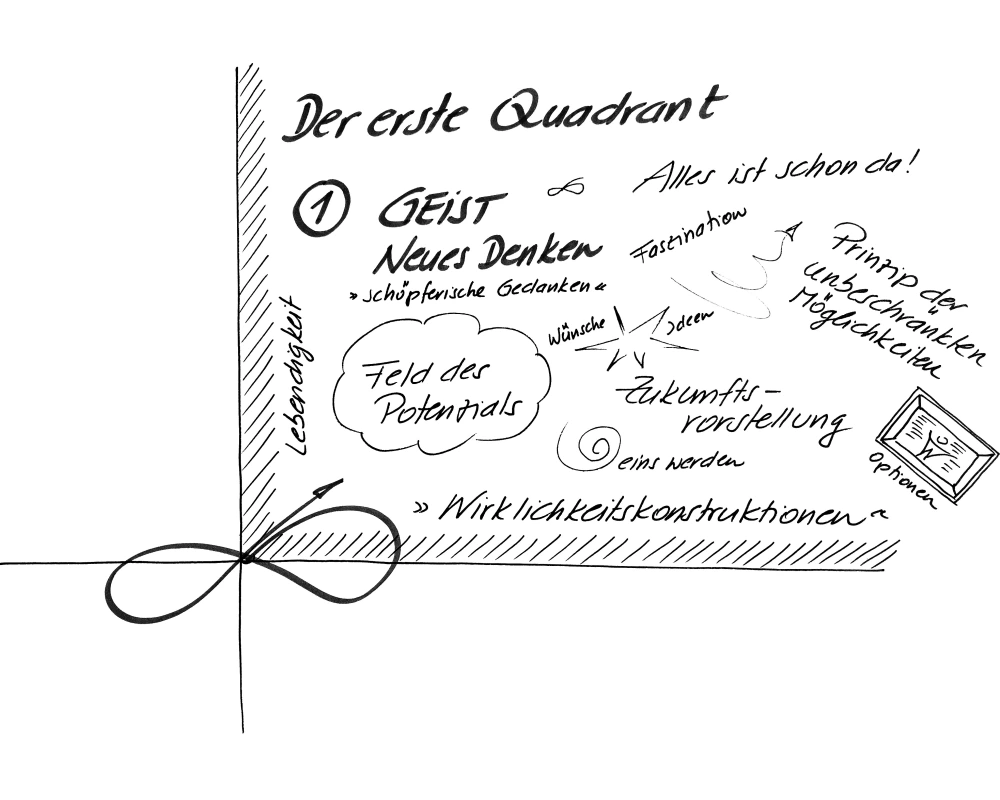 Der erste Quadrant
1
GEIST
∞
Alles ist schon da!
Neues Denken
Faszination
» schöpferische Gedanken «
Prinzip der
unbeschränkten
Möglichkeiten
Lebendigkeit
Wünsche
Ideen
Feld des
Potenzials
Zukunfts-
vorstellung
eins werden
Optionen
» Wirklichkeitskonstruktionen «